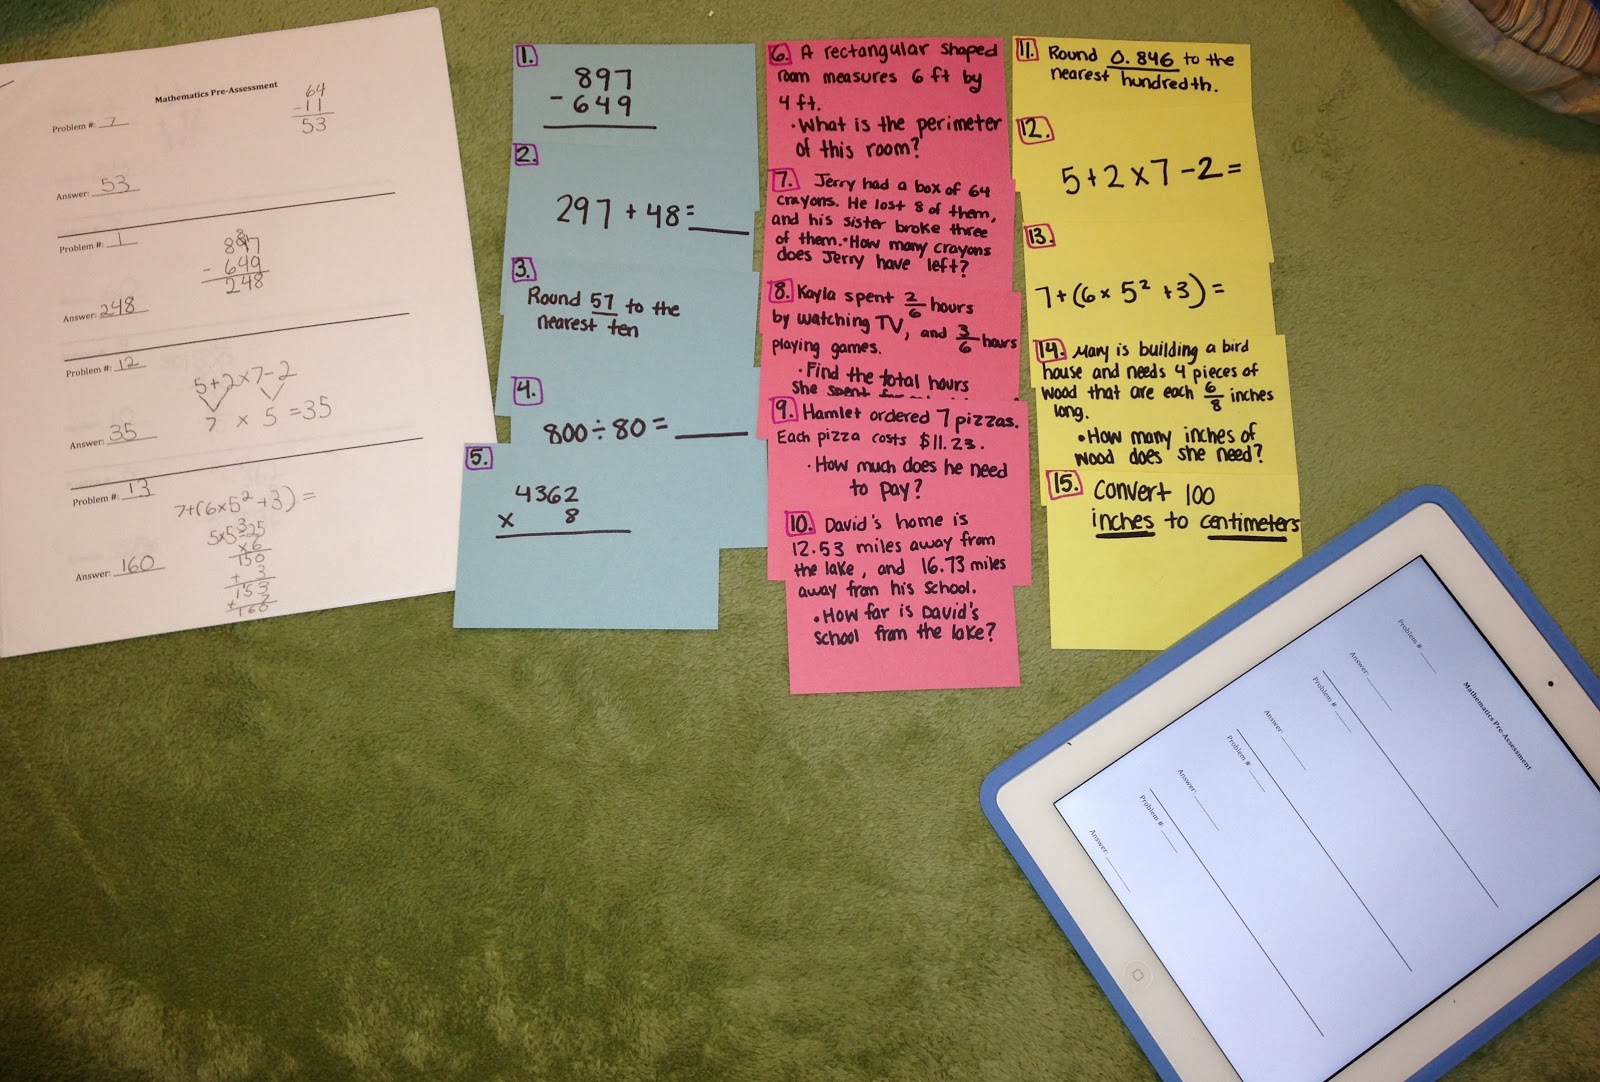 Mathematics Pre-Assessment
Problem #: 7
64
-11
53
Answer: 53
Problem #: 1
8
897
- 649
248
Answer: 248
Problem #: 12
5+2x7-2
7 x 5 =35
Answer: 35
Problem #: 13
7+(6x5²+3)=
3
5x5=25
x6
150
+ 3
153
+ 7
160
Answer: 160
1.
897
- 649
2.
297 + 48 = ____
3.
Round 57 to the
nearest ten
4.
800 ÷ 80 = ____
5.
4362
x 8
6. A rectangular shaped
room measures 6 ft by
4 ft.
• What is the perimeter
of this room?
7. Jerry had a box of 64
crayons. He lost 8 of them,
and his sister broke three
of them. • How many crayons
does Jerry have left?
8. Kayla spent 2/6 hours
by watching TV, and 3/6 hours
playing games.
• Find the total hours
she spent
9. Hamlet ordered 7 pizzas.
Each pizza costs $11.23.
• How much does he need
to pay?
10. David's home is
12.53 miles away from
the lake, and 16.73 miles
away from his school.
• How far is David's
school from the lake?
11. Round 0.846 to the
nearest hundredth.
12.
5+2x7-2=
13.
7+(6x5²+3)=
14. Mary is building a bird
house and needs 4 pieces of
wood that are each 6/8 inches
long.
• How many inches of
wood does she need?
15. Convert 100
inches to centimeters
Mathematics Pre-Assessment
Problem #: ____
Answer: ____
Problem #: ____
Answer: ____
Problem #: ____
Answer: ____
Problem #: ____
Answer: ____